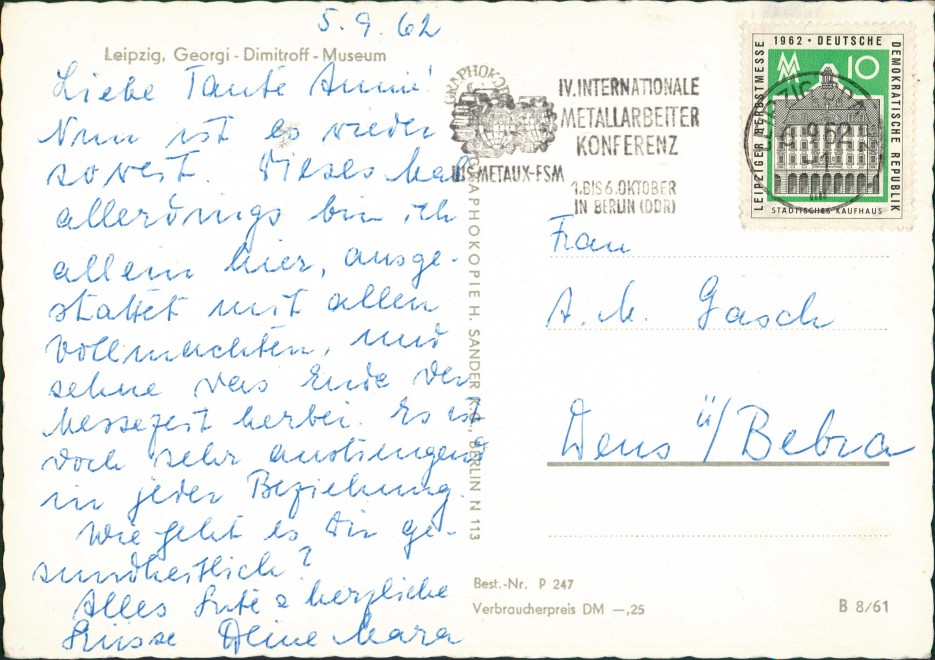 5.9.62
Leipzig, Georgi-Dimitroff-Museum
Liebe Tante Anni!
Nun ist es wieder
soweit. Dieses Mal
allerdings bin ich
allein hier, ausge-
stattet mit allen
Vollmachten, und
sehne das Ende der
Messezeit herbei. Es ist
doch sehr anstrengend
in jeder Beziehung.
Wie geht es Dir ge-
sundheitlich?
Alles Gute & herzliche
Grüsse Deine Mara
GRAPHOKOPIE H. SANDER K.G., BERLIN N 113
IV. INTERNATIONALE
METALLARBEITER
KONFERENZ
UIS METAUX-FSM
1. BIS 6. OKTOBER
IN BERLIN (DDR)
1962 · DEUTSCHE
DEMOKRATISCHE REPUBLIK
LEIPZIGER HERBSTMESSE
MM
10
STÄDTISCHES KAUFHAUS
LEIPZIG
Frau
A. M. Gasch
Dens ü/Bebra
Best.-Nr. P 247
Verbraucherpreis DM —,25
B 8/61